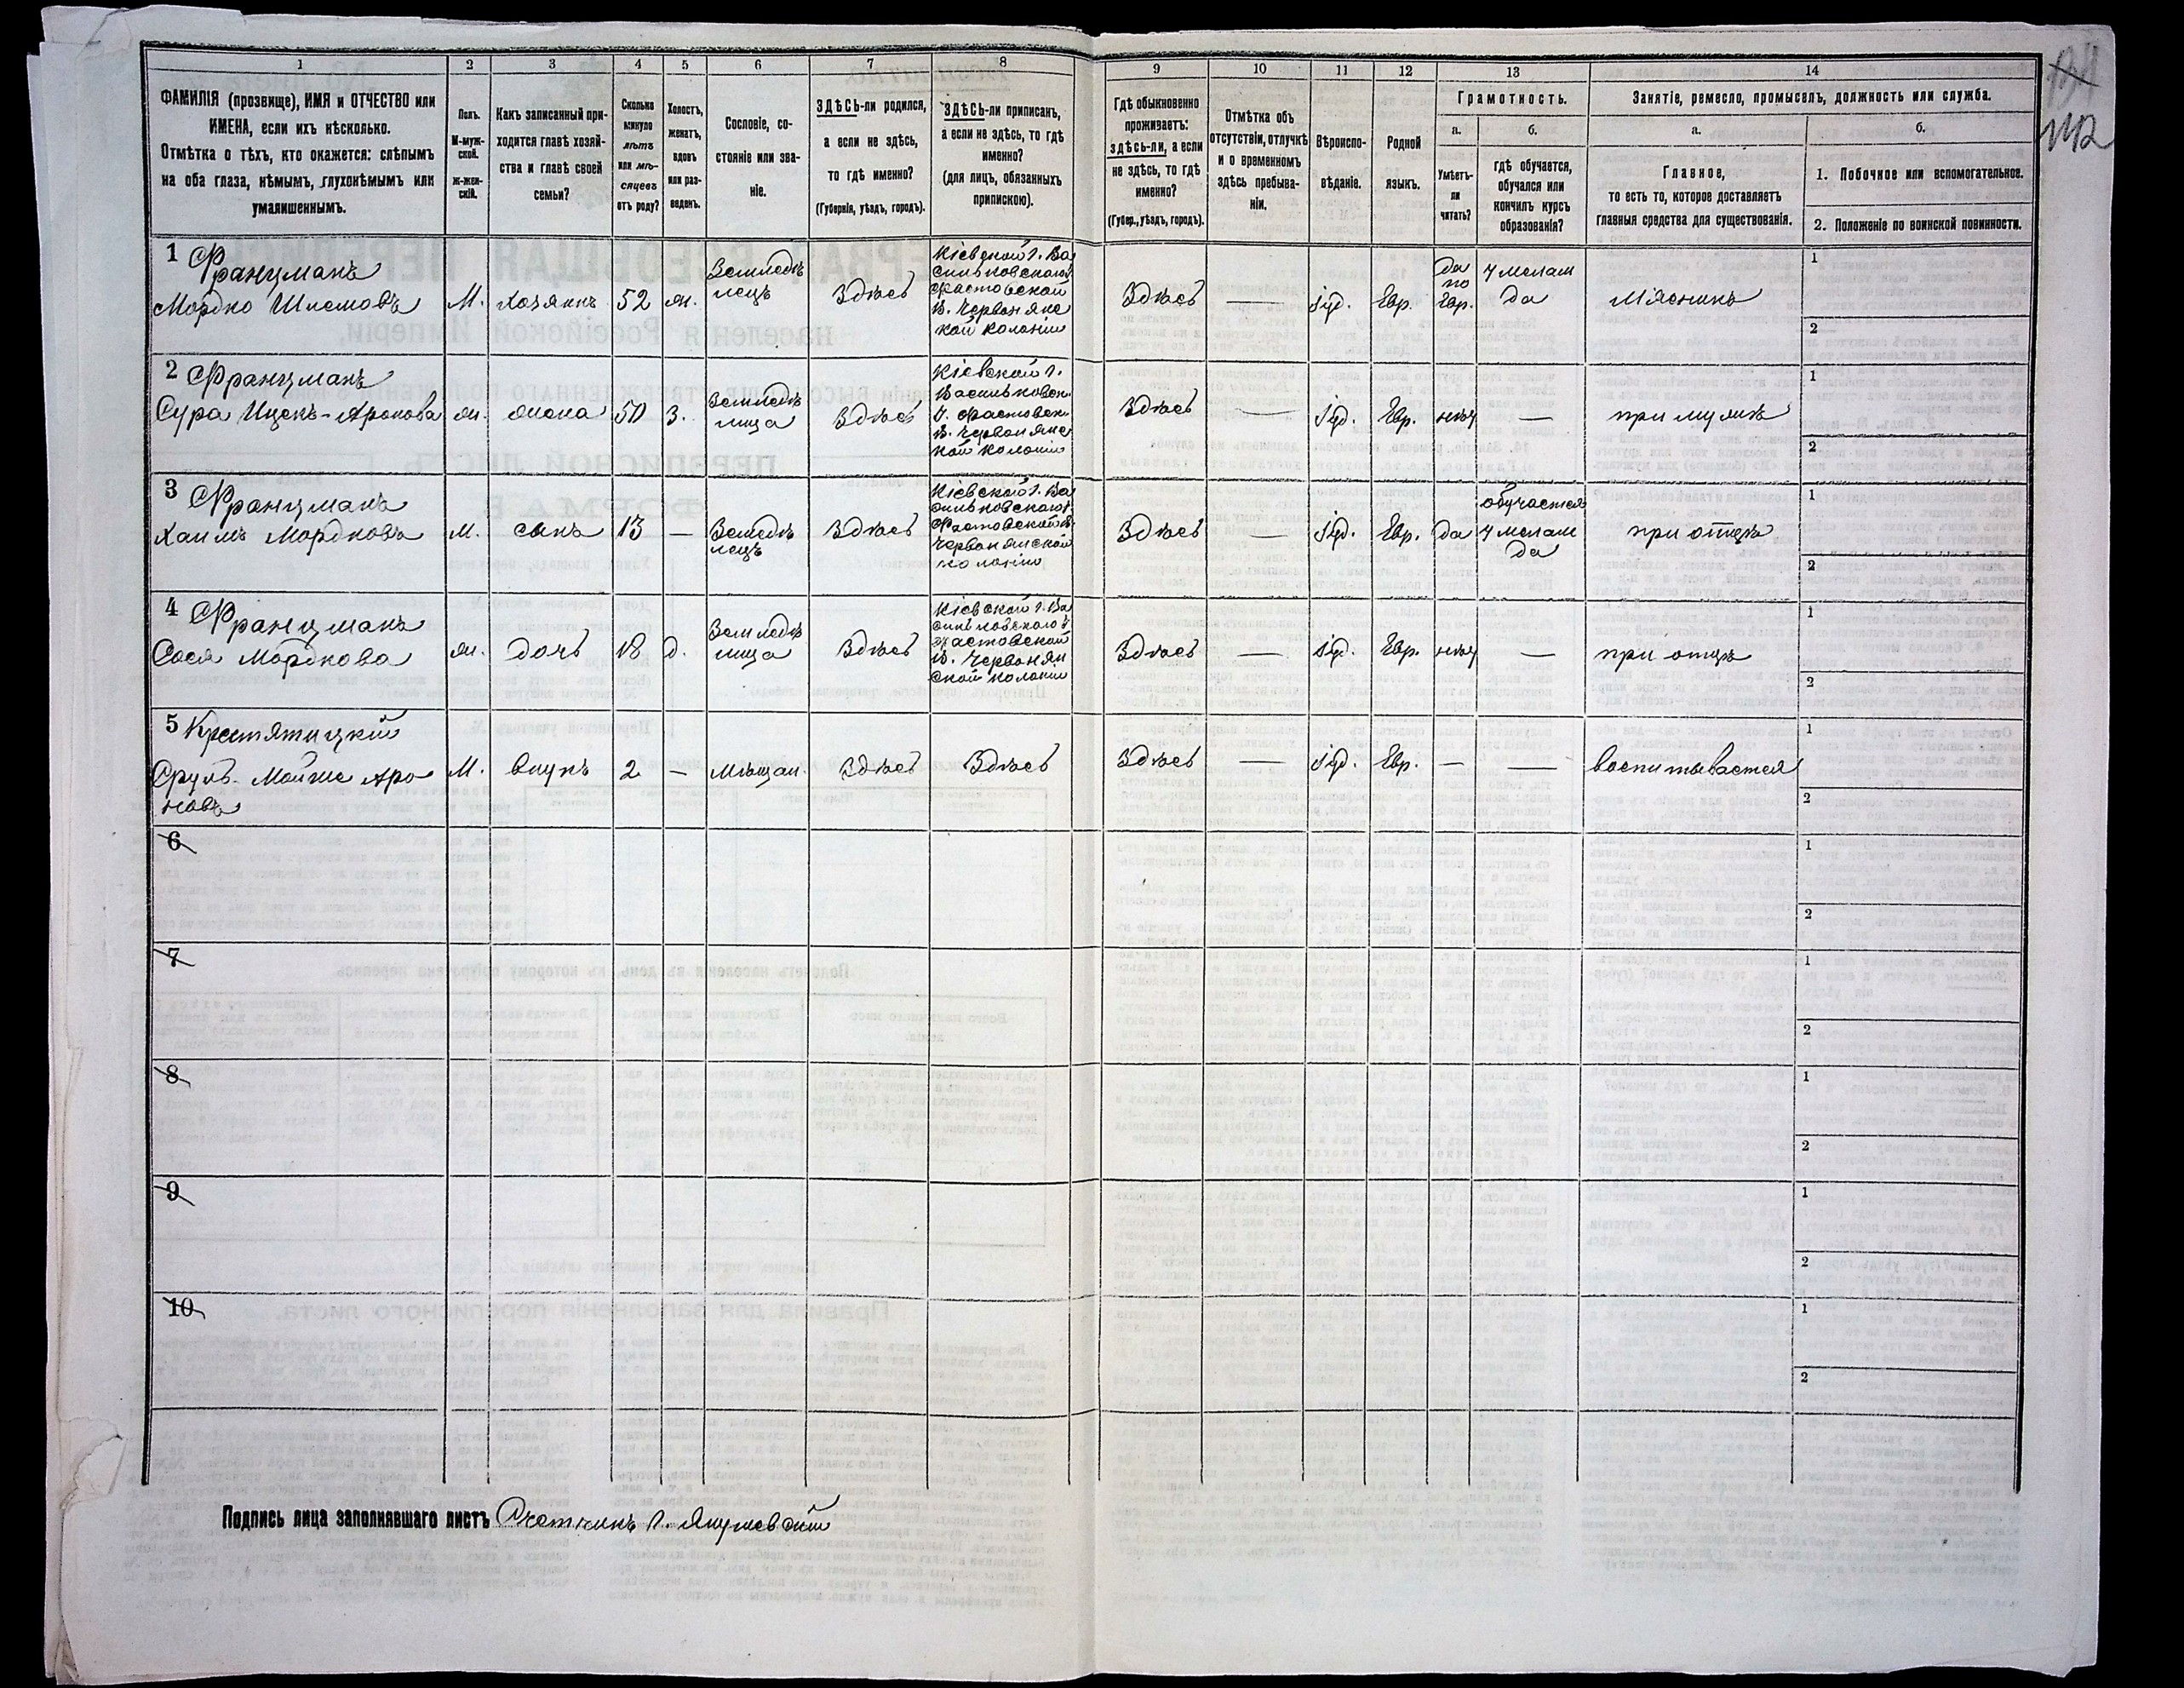 1 2 3 4 5 6 7 8 9 10 11 12 13 14
ФАМИЛІЯ (прозвище), ИМЯ и ОТЧЕСТВО или
ИМЕНА, если ихъ нѣсколько.
Отмѣтка о тѣхъ, кто окажется: слѣпымъ
на оба глаза, нѣмымъ, глухонѣмымъ или
умалишеннымъ.
Полъ.
М-муж-
ской.
Ж-жен-
скій.
Какъ записанный при-
ходится главѣ хозяй-
ства и главѣ своей
семьи?
Сколько
минуло
лѣтъ
или мѣ-
сяцевъ
отъ роду?
Холостъ,
женатъ,
вдовъ
или раз-
веденъ.
Сословіе, со-
стояніе или зва-
ніе.
ЗДѢСЬ-ли родился,
а если не здѣсь,
то гдѣ именно?
(Губернія, уѣздъ, городъ).
ЗДѢСЬ-ли приписан,
а если не здѣсь, то гдѣ
именно?
(для лицъ, обязанныхъ
припискою).
Гдѣ обыкновенно
проживаетъ:
здѣсь-ли, а если
не здѣсь, то гдѣ
именно?
(Губер., уѣздъ, городъ).
Отмѣтка объ
отсутствіи, отлучкѣ
и о временномъ
здѣсь пребыва-
ніи.
Вѣроиспо-
вѣданіе.
Родной
языкъ.
Грамотность.
а.
Умѣетъ-
ли
читать?
б.
гдѣ обучается,
обучался или
кончилъ курсъ
образованія?
Занятіе, ремесло, промыселъ, должность или служба.
а.
Главное,
то есть то, которое доставляетъ
главныя средства для существованія.
б.
1. Побочное или вспомогательное.
2. Положеніе по воинской повинности.
1 Францманъ
Мордко Шлемовъ
М.
хозяинъ
52
ж.
Земледѣ
лецъ
Здѣсь
Кіевской г. Ва
сильковскаго у.
Фастовской
в. Червонянс
кой колоніи
Здѣсь
—
Іуд.
Евр.
да
по
Евр.
у мелам
да
Мясникъ
1
2
2 Францманъ
Сура Ицекъ-Аронова
ж.
жена
50
З.
Земледѣ
лица
Здѣсь
Кіевской г.
Васильковск
у. Фастовск
в. Червонянс
кой колоніи
Здѣсь
—
Іуд.
Евр.
нѣт
—
при мужѣ
1
2
3 Францманъ
Хаимъ Мордковъ
М.
сынъ
13
—
Земледѣ
лецъ
Здѣсь
Кіевской г. Ва
сильковскаго у.
Фастовской в.
Червонянской
колоніи
Здѣсь
—
Іуд.
Евр.
да
обучается
у мелам
да
при отцѣ
1
2
4 Францманъ
Сося Мордкова
ж.
дочь
18
д.
Земледѣ
лица
Здѣсь
Кіевской г. Ва
сильковскаго у
Фастовской
в. Червонян
ской колоніи
Здѣсь
—
Іуд.
Евр.
нѣт
—
при отцѣ
1
2
5
Сруль-Мойше Аро
новъ
М.
внукъ
2
—
Мѣщан.
Здѣсь
Здѣсь
Здѣсь
—
Іуд.
Евр.
—
—
воспитывается
1
2
6
1
2
7
1
2
8
1
2
9
1
2
10
1
2
Подпись лица заполнявшаго листъ Счетчикъ